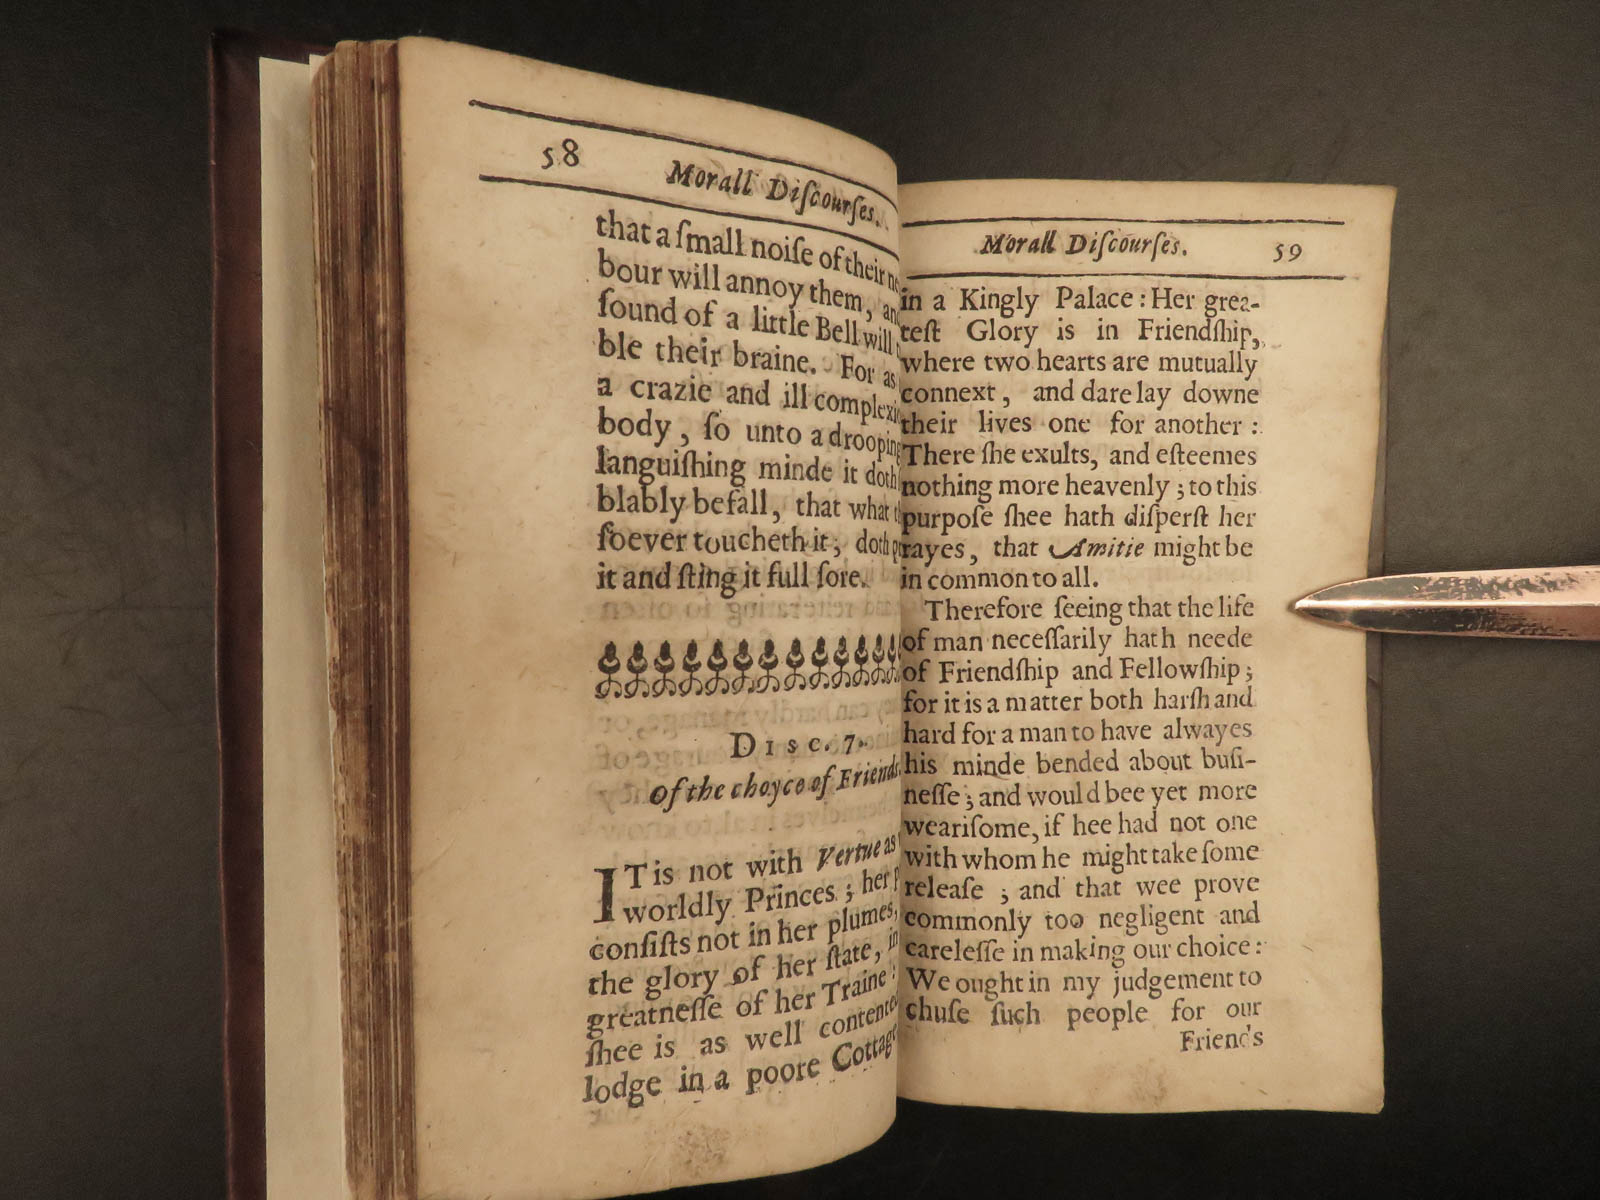 58
Morall Diſcourſes.
that a ſmall noiſe of their
bour will annoy them,
ſound of a little Bell will
ble their braine. For as
a crazie and ill
body, ſo unto a
languiſhing minde it doth
blably befall, that what
ſoever toucheth it, doth
it and ſting it full ſore.
Disc. 7.
Of the choyce of Friends.
IT is not with Vertue as
worldly Princes; her
conſiſts not in her plumes,
the glory of her ſtate,
greatneſſe of her Traine:
ſhee is as well
lodge in a poore
Morall Diſcourſes. 59
in a Kingly Palace: Her grea-
teſt Glory is in Friendſhip,
where two hearts are mutually
connext, and dare lay downe
their lives one for another:
There ſhe exults, and eſteemes
nothing more heavenly; to this
purpoſe ſhee hath diſperſt her
rayes, that Amitie might be
in common to all.
Therefore ſeeing that the life
of man neceſſarily hath neede
of Friendſhip and Fellowſhip;
for it is a matter both harſh and
hard for a man to have alwayes
his minde bended about buſi-
neſſe; and would bee yet more
weariſome, if hee had not one
with whom he might take ſome
releaſe; and that wee prove
commonly too negligent and
careleſſe in making our choice:
We ought in my judgement to
chuſe ſuch people for our
Friends